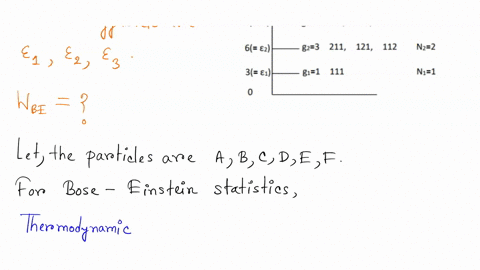 6(= ε₂) g₂=3 211, 121, 112 N₂=2
ε₁, ε₂, ε₃.
3(= ε₁) g₁=1 111 N₁=1
0
W_BE = ?
Let, the particles are A, B, C, D, E, F.
For Bose - Einstein statistics,
Thermodynamic